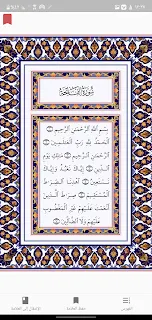 سُورَةُ الفَاتِحَةِ
بِسْمِ اللَّهِ الرَّحْمَٰنِ الرَّحِيمِ ١
الْحَمْدُ لِلَّهِ رَبِّ الْعَٰلَمِينَ ٢
الرَّحْمَٰنِ الرَّحِيمِ ٣ مَٰلِكِ يَوْمِ
الدِّينِ ٤ إِيَّاكَ نَعْبُدُ وَإِيَّاكَ
نَسْتَعِينُ ٥ اهْدِنَا الصِّرَٰطَ
الْمُسْتَقِيمَ ٦ صِرَٰطَ الَّذِينَ
أَنْعَمْتَ عَلَيْهِمْ غَيْرِ الْمَغْضُوبِ
عَلَيْهِمْ وَلَا الضَّالِّينَ ٧
الفهرس
حفظ العلامة
الانتقال إلى العلامة